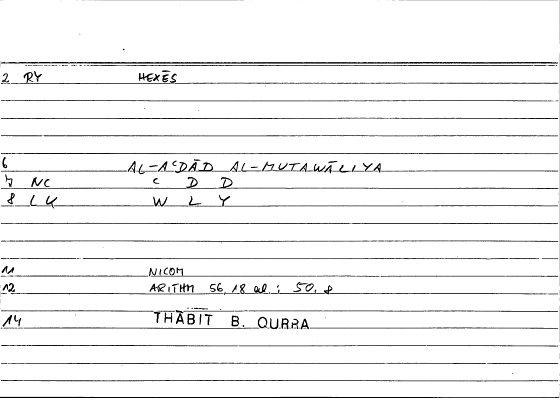 2 RY HEXĒS
6 AL-AʿDĀD AL-MUTAWĀLIYA
7 NC C D D
8 LK W L Y
11 NICOM
12 ARITHM 56, 18 al. ; 50, 8
14 THĀBIT B. QURRA